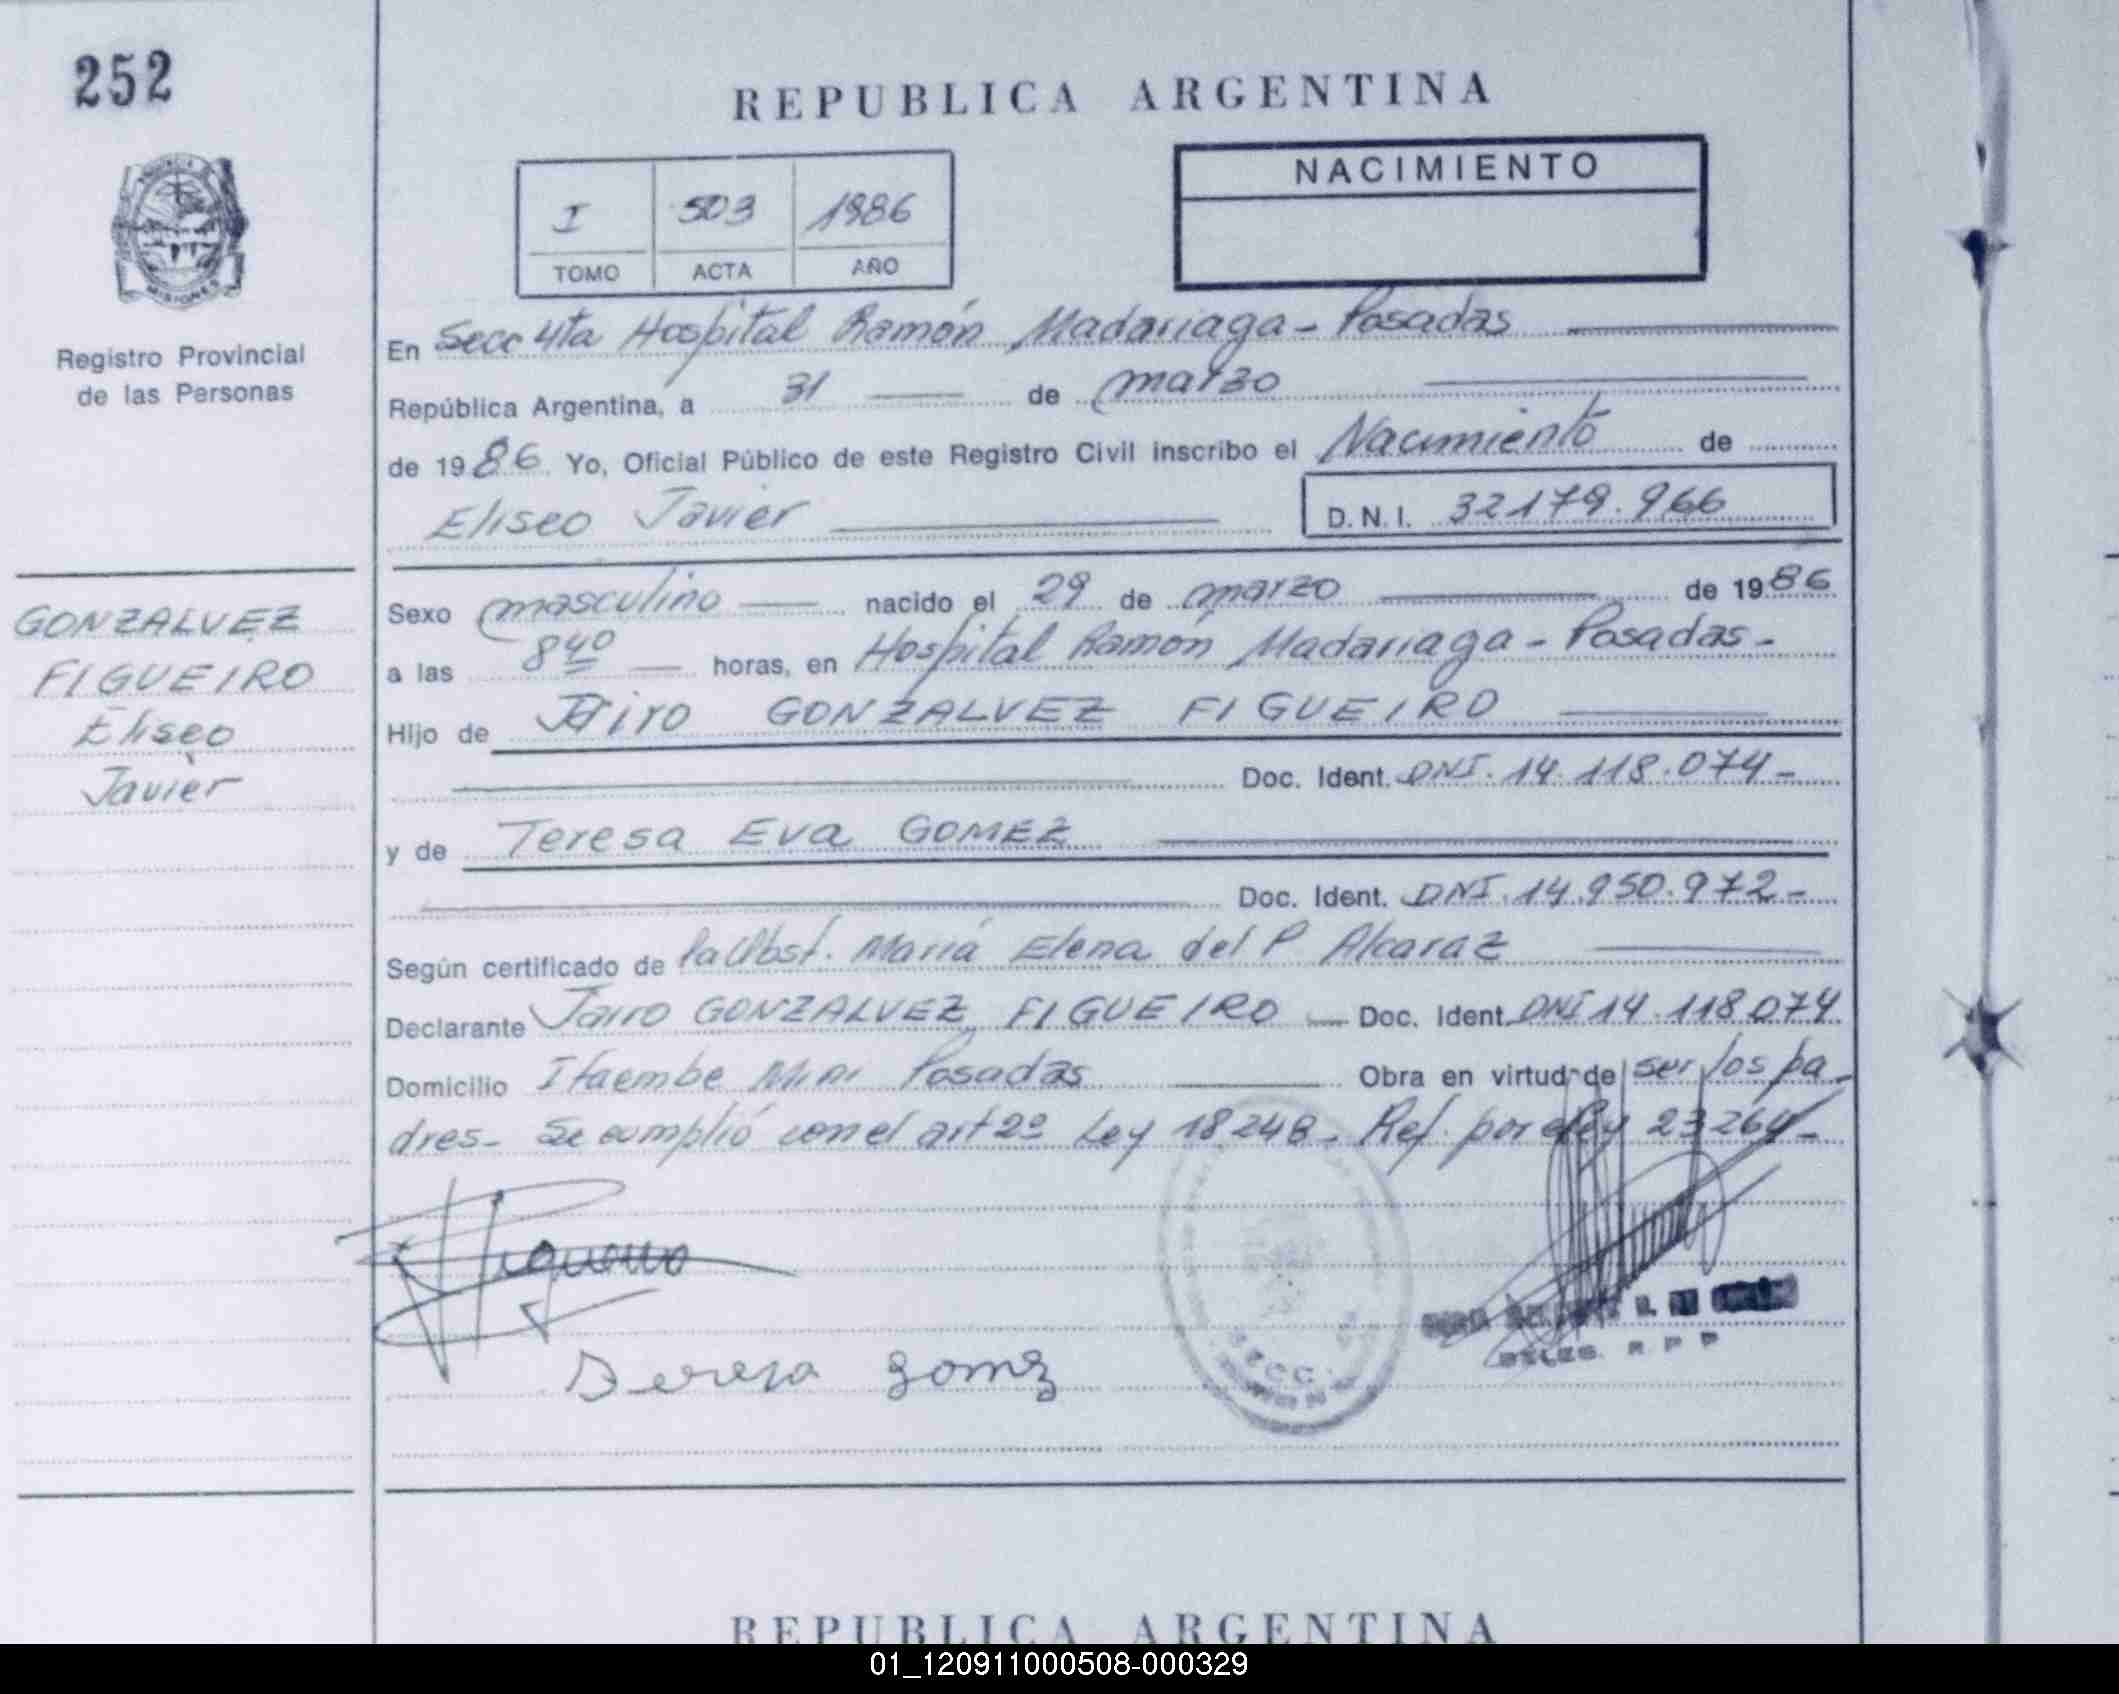 252
REPUBLICA ARGENTINA
PROVINCIA
MISIONES
Registro Provincial
de las Personas
NACIMIENTO
I 503 1986
TOMO ACTA AÑO
En Secc 4ta Hospital Ramón Madariaga - Posadas
República Argentina, a 31 de marzo
de 1986 Yo, Oficial Público de este Registro Civil inscribo el Nacimiento de
Eliseo Javier D.N.I. 32179.966
GONZALVEZ
FIGUEIRO
Eliseo
Javier
Sexo masculino nacido el 29 de marzo de 1986
a las 8 40 horas, en Hospital Ramón Madariaga - Posadas -
Hijo de Jairo GONZALVEZ FIGUEIRO
Doc. Ident. DNI. 14.118.074 -
y de Teresa Eva GOMEZ
Doc. Ident. DNI. 14.950.972 -
Según certificado de la Obst. María Elena del P Alcaraz
Declarante Jairo GONZALVEZ FIGUEIRO Doc. Ident. DNI 14.118.074
Domicilio Itaembe Mini Posadas Obra en virtud de ser los pa-
dres - Se cumplió con el art 2º Ley 18248 - Ref. por Ley 23264 -
Figueiro
Teresa Gomez
SECC.
R P P
REPUBLICA ARGENTINA
01_120911000508-000329